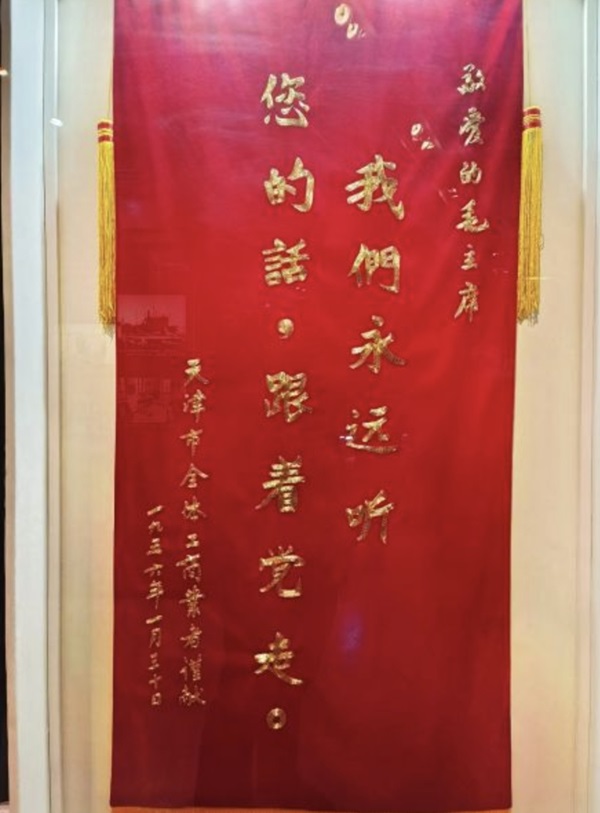 敬爱的毛主席
我們永远听
您的話，跟着党走。
天津市全体工商業者谨献
一九五六年一月三十日